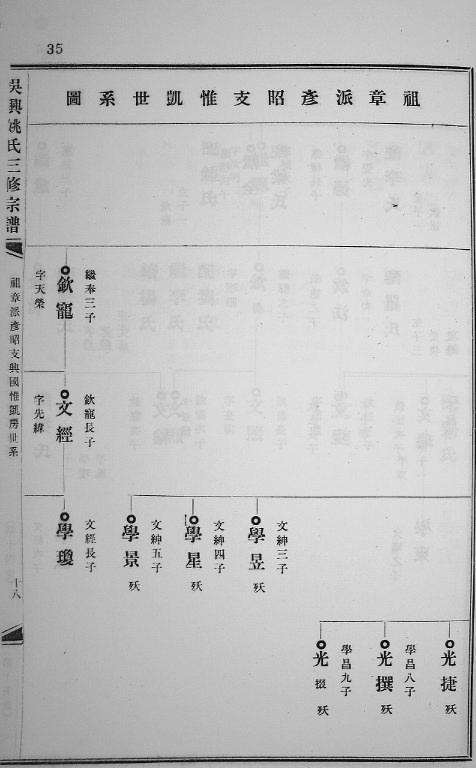 35
祖章派彥昭支惟凱世系圖
光捷
殀
學昌八子
光撰
殀
學昌九子
光掇
殀
文紳三子
學昱
殀
文紳四子
學星
殀
文紳五子
學景
殀
文經長子
學瓊
欽寵長子
文經
字先緯
繼奉三子
欽寵
字天榮
吳興姚氏三修宗譜
祖章派彥昭支興國惟凱房世系
十八